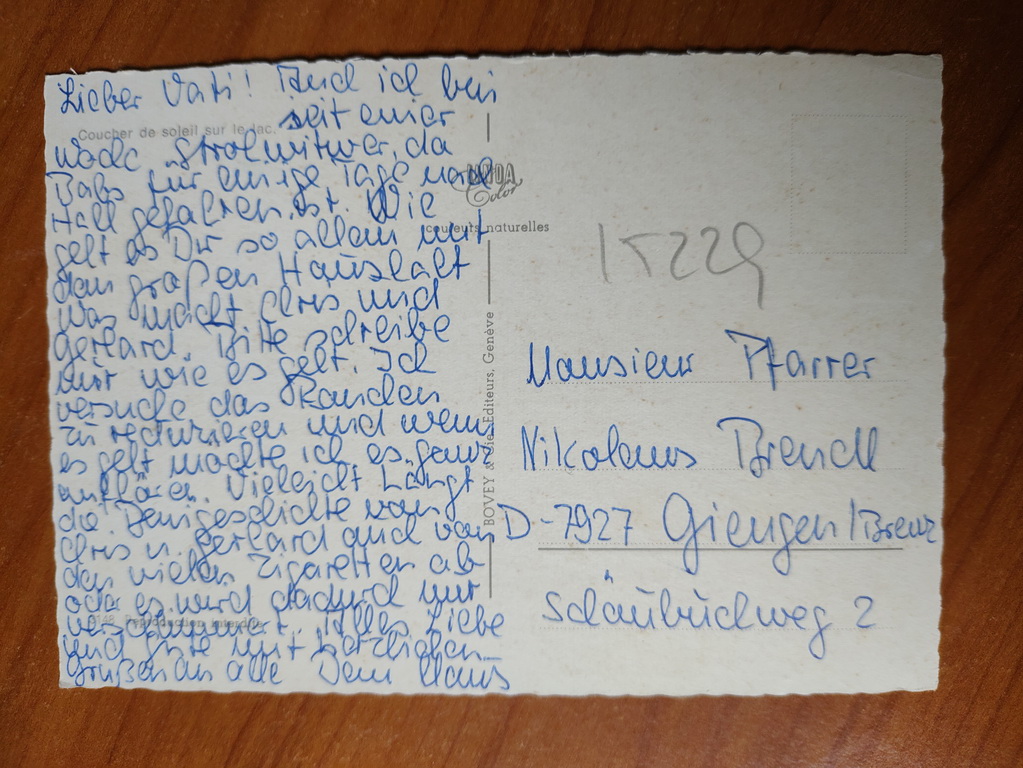 Lieber Vati! Auch ich bin
seit einer
Coucher de soleil sur le lac.
Woche Strohwitwer, da
Babs für einige Tage nach
Hall gefahren ist. Wie
geht es Dir so allein mit
dem großen Haushalt
was macht Chris und
Gerhard. Bitte schreibe
mir wie es geht. Ich
versuche das Rauchen
zu reduzieren und wenn
es geht möchte ich es ganz
aufhören. Vieleicht hängt
die Beingeschichte von
Chris u. Gerhard auch von
den vielen Zigaretten ab
oder es wird dadurch nur
verschlimmert. Alles Liebe
und Gute mit herzlichen
Grüßen an alle Dein Hans
Reproduction interdite
Color
couleurs naturelles
BOVEY & Cie, Editeurs, Genève
15229
Monsieur Pfarrer
Nikolaus Brendl
D-7927 Giengen/Brenz
Schäubuchweg 2